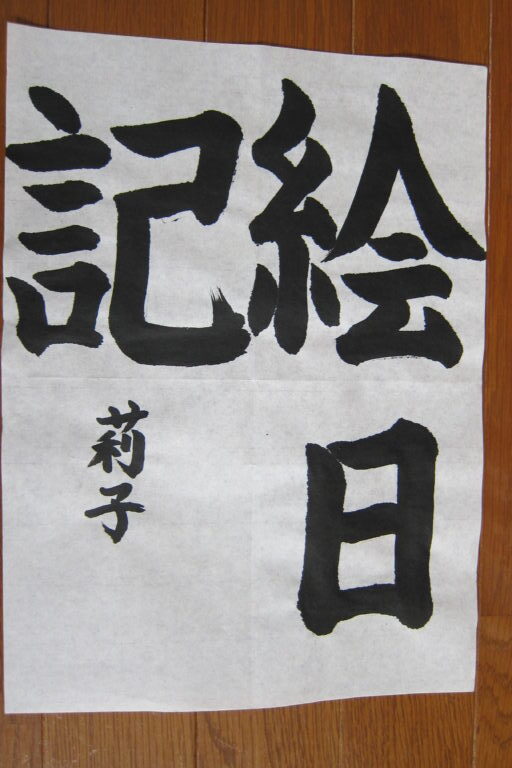 絵日
記
莉子